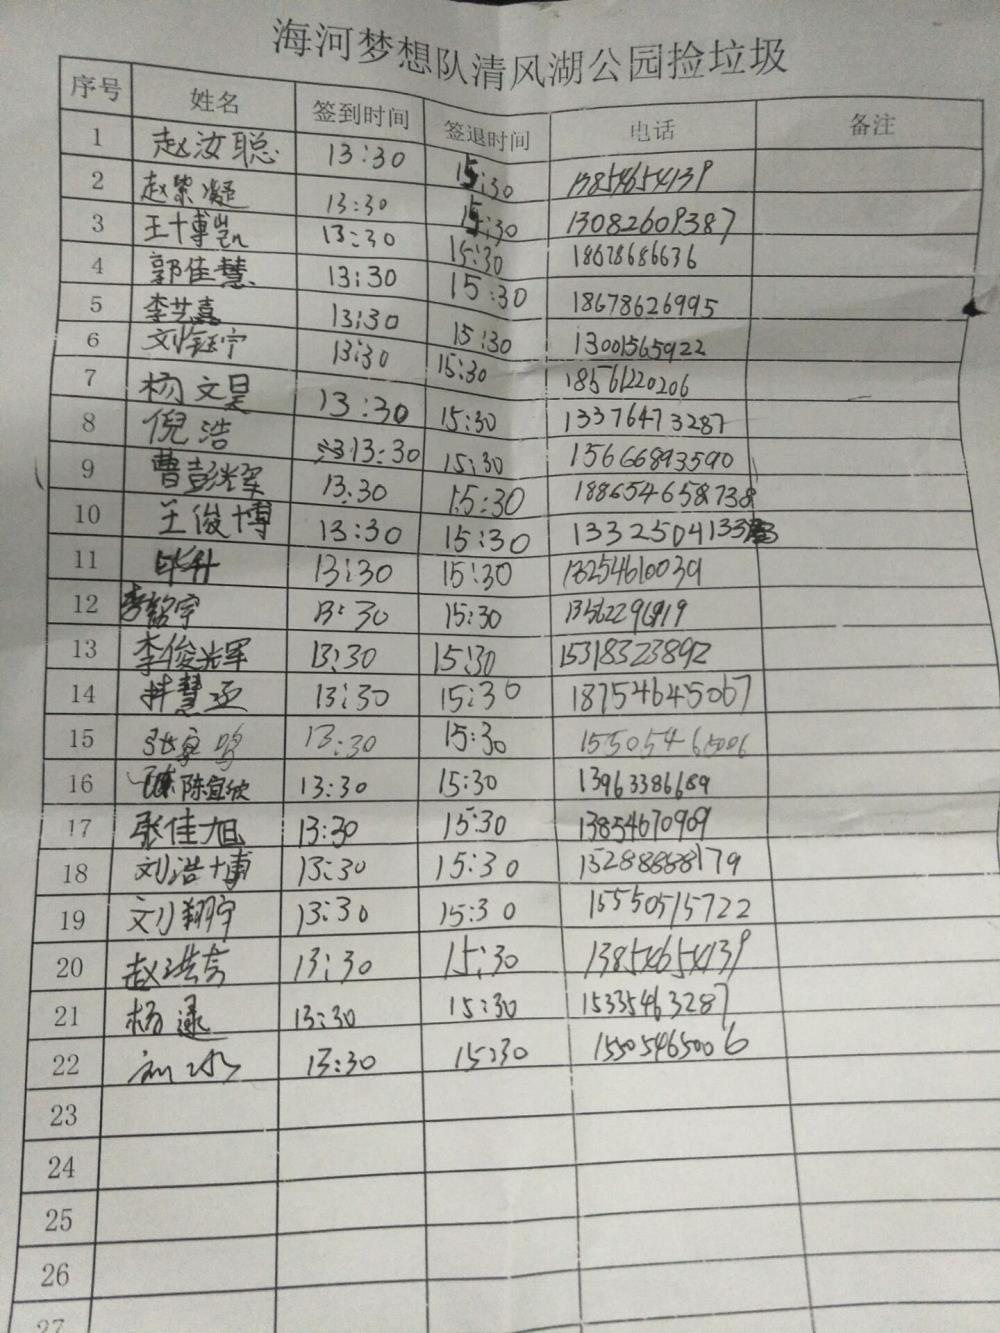 海河梦想队清风湖公园捡垃圾
序号 姓名 签到时间 签退时间 电话 备注
1 赵汝聪 13:30 15:30 13854654139
2 赵紫凝 13:30 15:30 13082609387
3 王博凯 13:30 15:30 18678686636
4 郭佳慧 13:30 15:30 18678626995
5 李艺嘉 13:30 15:30 13001565922
6 刘钰宁 13:30 15:30 18561220206
7 杨文昊 13:30 15:30 13376473287
8 倪浩 13:30 15:30 15666893590
9 曹彭辉 13:30 15:30 188654658738
10 王俊博 13:30 15:30
11 毕升 13:30 15:30 13254610039
12 李韶宇 13:30 15:30
13 李俊辉 13:30 15:30 15318323892
14 13:30 15:30 18754645067
15 13:30 15:30
16 陈宜欣 13:30 15:30 13963386689
17 张佳旭 13:30 15:30 13854670969
18 刘浩博 13:30 15:30
19 刘翔宇 13:30 15:30 15550515722
20 赵洪亮 13:30 15:30 13854654139
21 杨逯 13:30 15:30 15335463287
22 13:30 15:30 15505465006
23
24
25
26
27